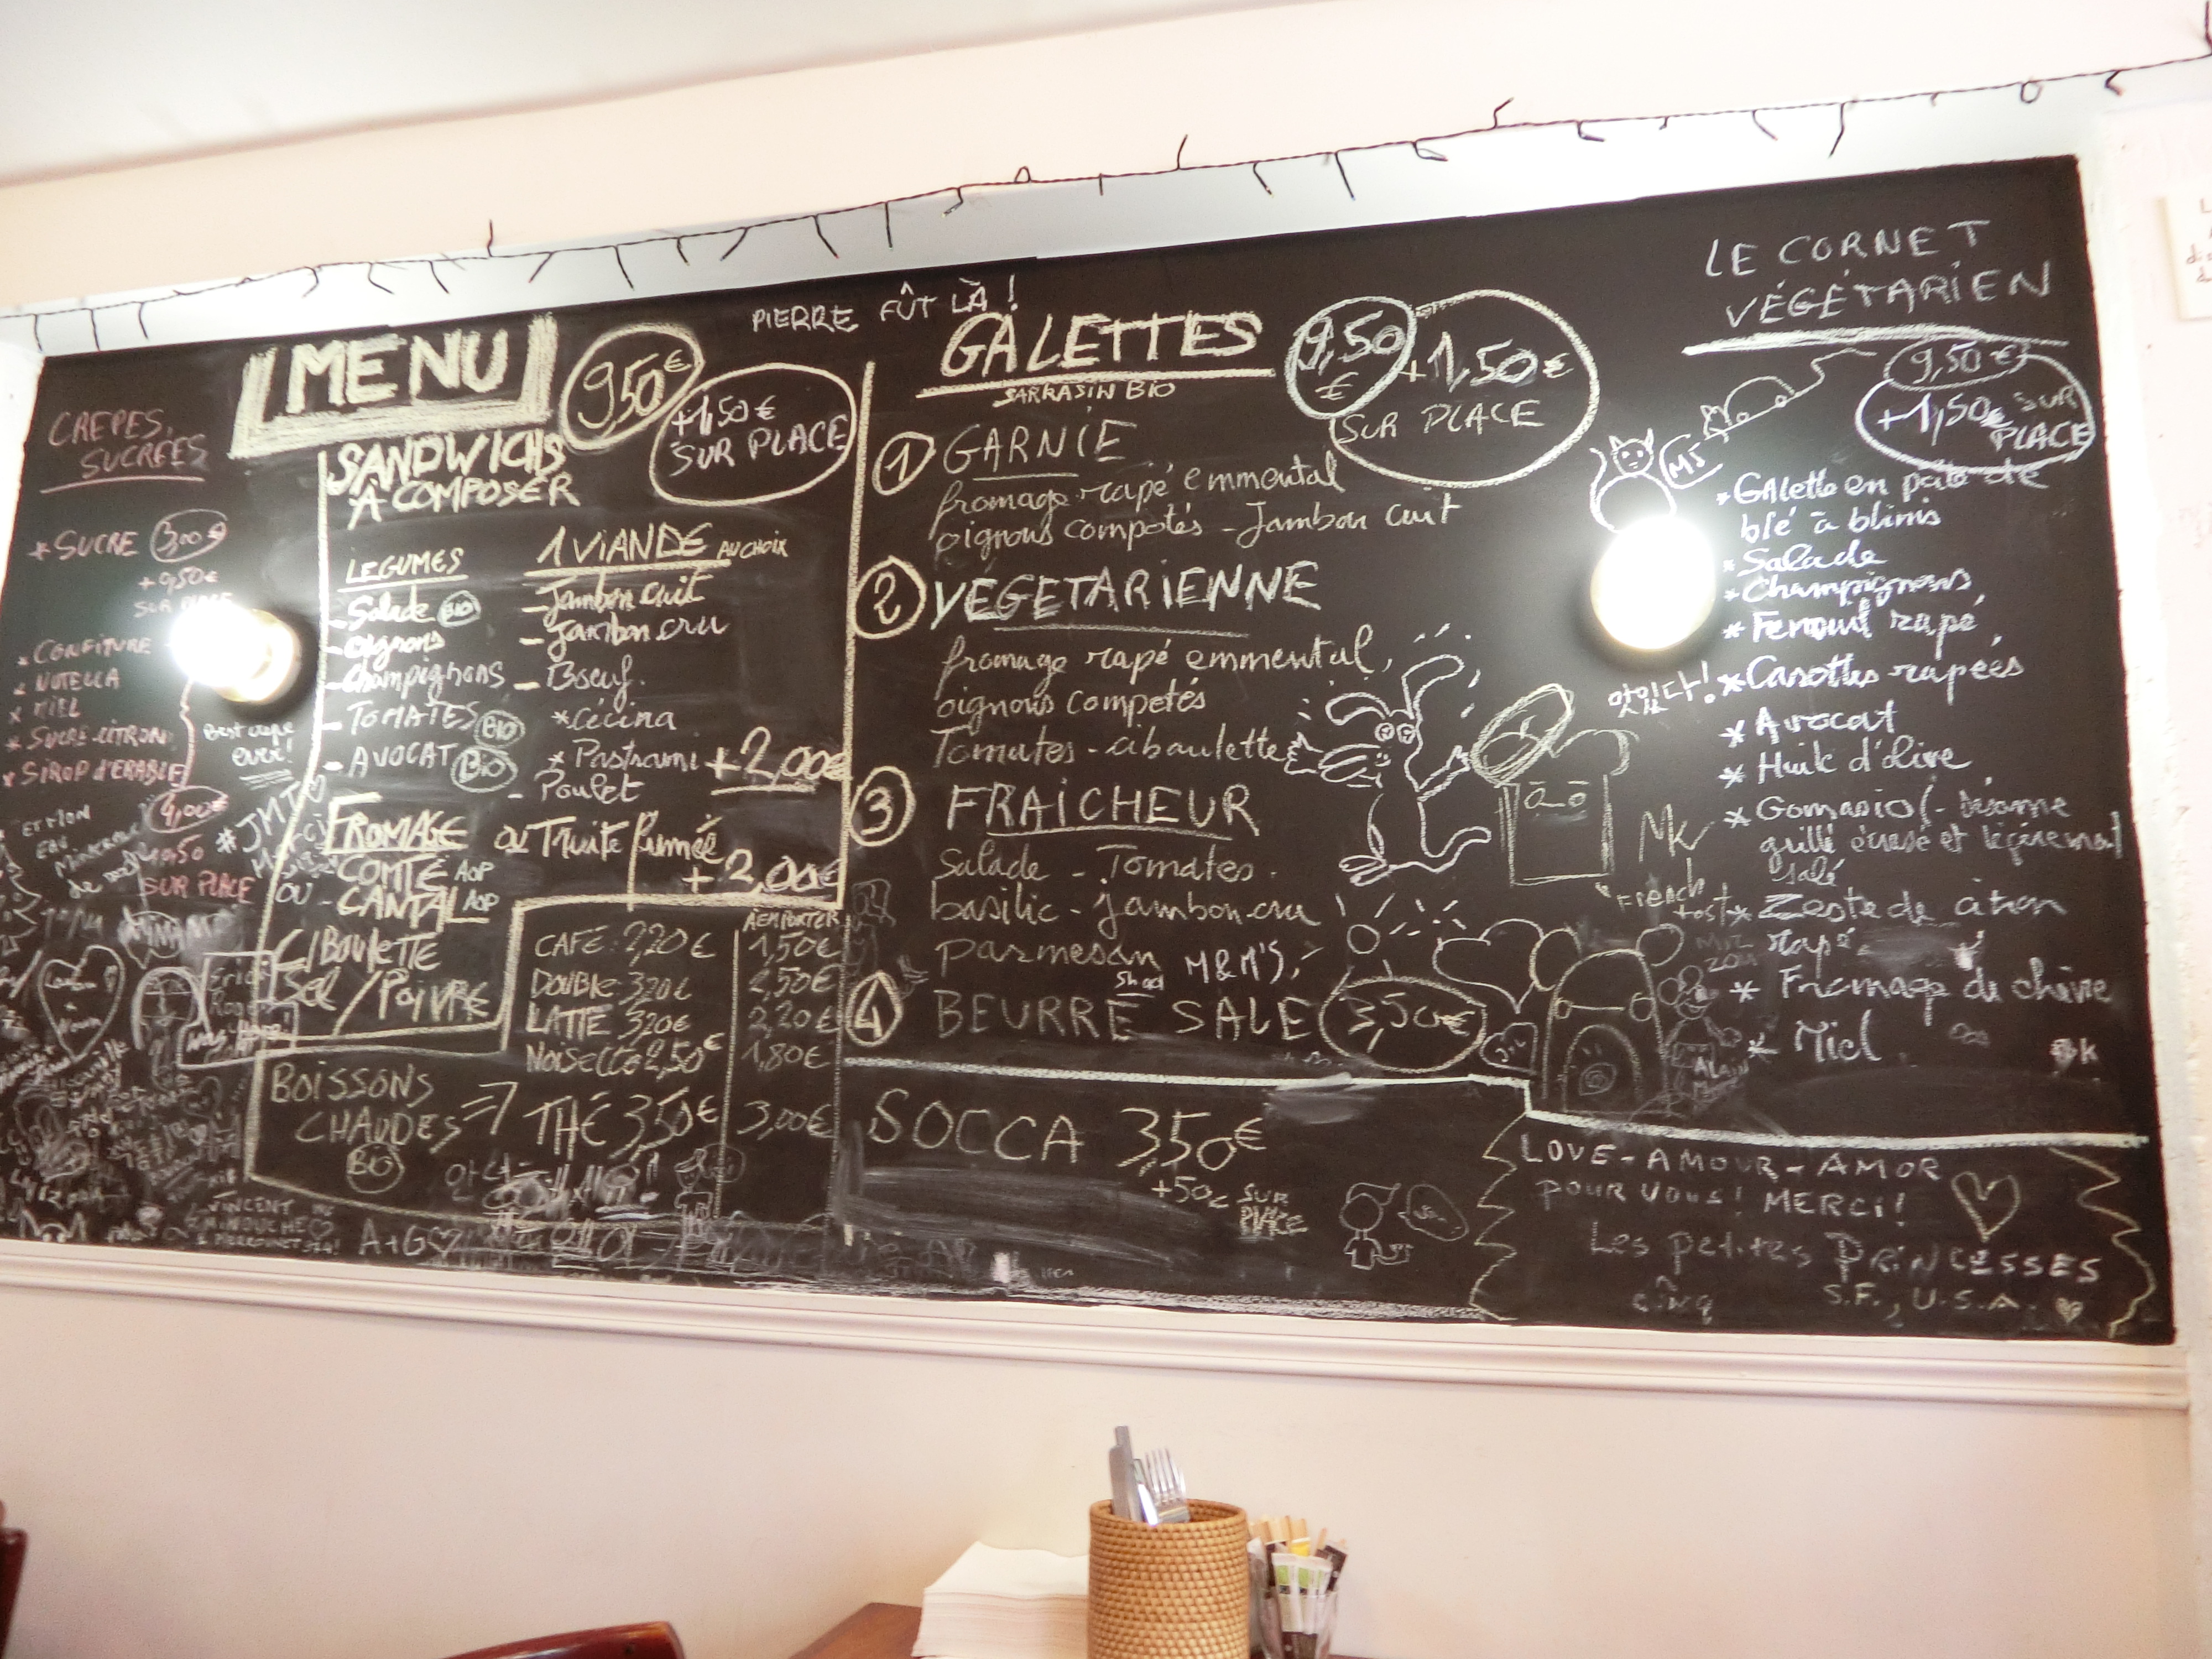 PIERRE FÛT LÀ !
CRÊPES
SUCRÉES
* SUCRE 3,00€
SUR PLACE
* CONFITURE
* NUTELLA
* MIEL
* SUCRE-CITRON
* SIROP d'ERABLE
4,00€
SUR PLACE
Best crêpe
ever!
MENU
9,50€
+1,50€
SUR PLACE
SANDWICHS
À COMPOSER
LEGUMES
- Salade BIO
- Oignons
- Champignons
- TOMATES BIO
- AVOCAT BIO
1 VIANDE AU CHOIX
- Jambon cuit
- Jambon cru
- Boeuf.
* Cécina
* Pastrami +2,00€
- Poulet
ou Truite fumée
+2,00€
FROMAGE
COMTÉ AOP
OU - CANTAL AOP
CIBOULETTE
Sel / POIVRE
BOISSONS
CHAUDES
BIO
À EMPORTER
CAFÉ 2,20€ 1,50€
DOUBLE 3,20€ 2,50€
LATTE 3,20€ 2,20€
Noisette 2,50€ 1,80€
THÉ 3,50€ 3,00€
VINCENT
MINOUCHE
A+G
GALETTES
SARRASIN BIO
9,50
€
+1,50€
SUR PLACE
1 GARNIE
fromage rapé emmental
oignons compotés - Jambon cuit
2 VEGETARIENNE
fromage rapé emmental,
oignons competés
Tomates - ciboulette
3 FRAICHEUR
Salade - Tomates.
basilic - jambon cru
parmesan M&M'S
Shad
4 BEURRE SALE 3,50€
SOCCA 3,50€
+50c SUR
PLACE
LE CORNET
VÉGÉTARIEN
9,50€
+1,50€ SUR
PLACE
MJ
* GAlette en pate de
blé à blinis
* Salade
* Champignons
* Fenouil rapé
* Carottes rapées
* Avocat
* Huile d'olive
* Gomasio (- sésame
grillé écrasé et légèrement
salé
* Zeste de citron
rapé
* Fromage de chèvre
* Miel
MK
French
tost
ALAIN
LOVE - AMOUR - AMOR
POUR VOUS! MERCI!
Les petites PRINCESSES
cinq S.F., U.S.A.